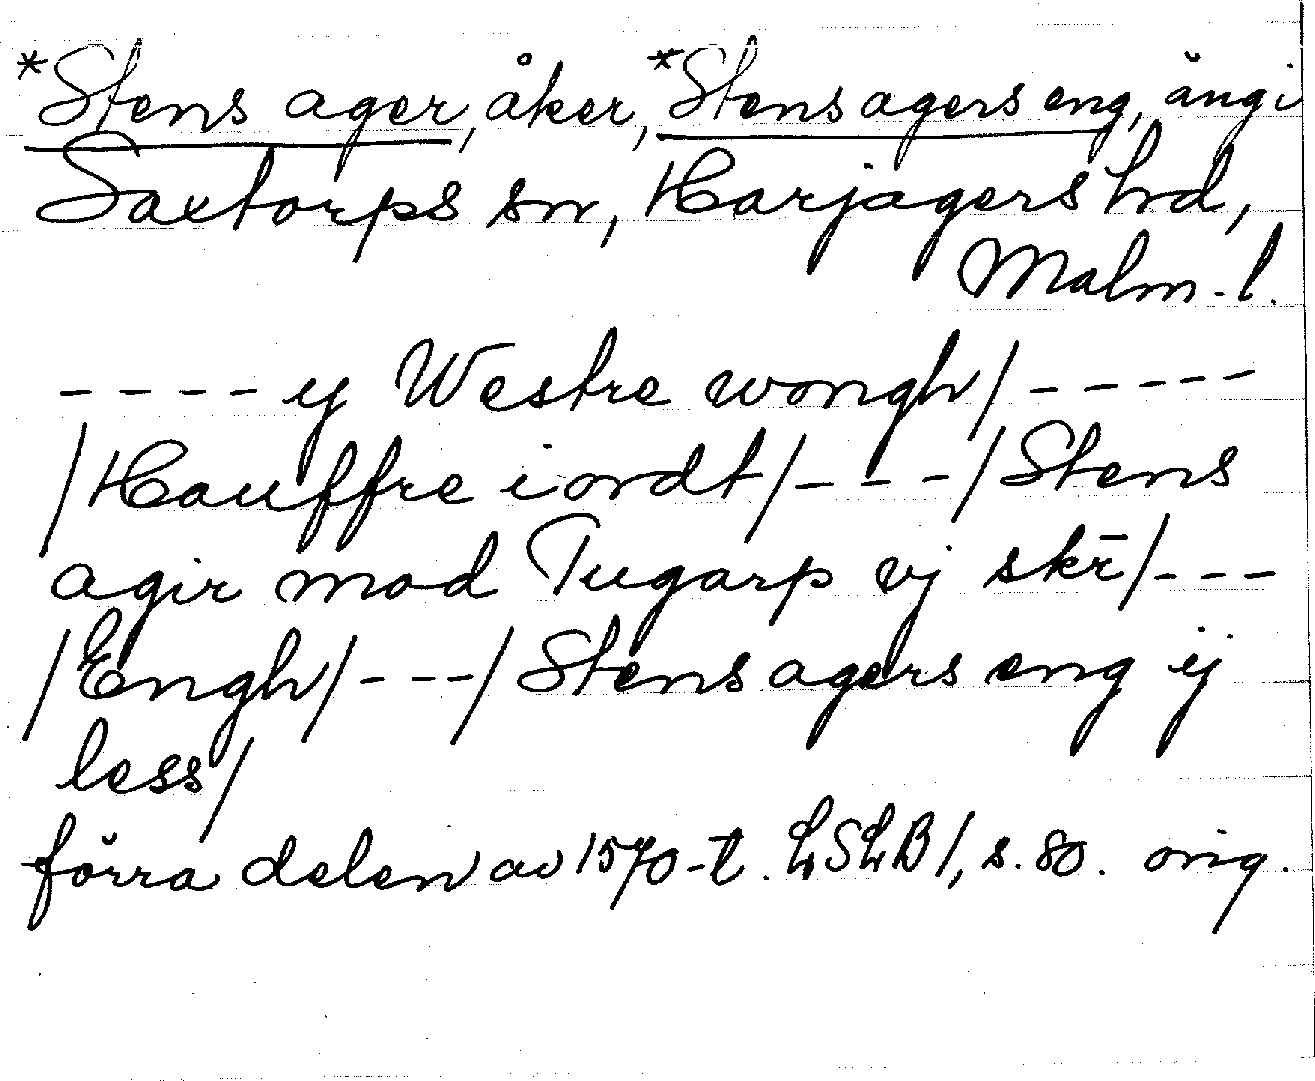 *Stens ager, åker, *Stensagers eng, äng i
Saxtorps sn, Harjagers hd,
Malm.l.
---- ij Westre wongh/-----
/Hauffre iordt/---/Stens
agir mod Tugarp vj skr̄/---
/Engh/---/Stens agers eng ij
less/
förra delen av 1570-t. LSLB1, s. 80. orig.